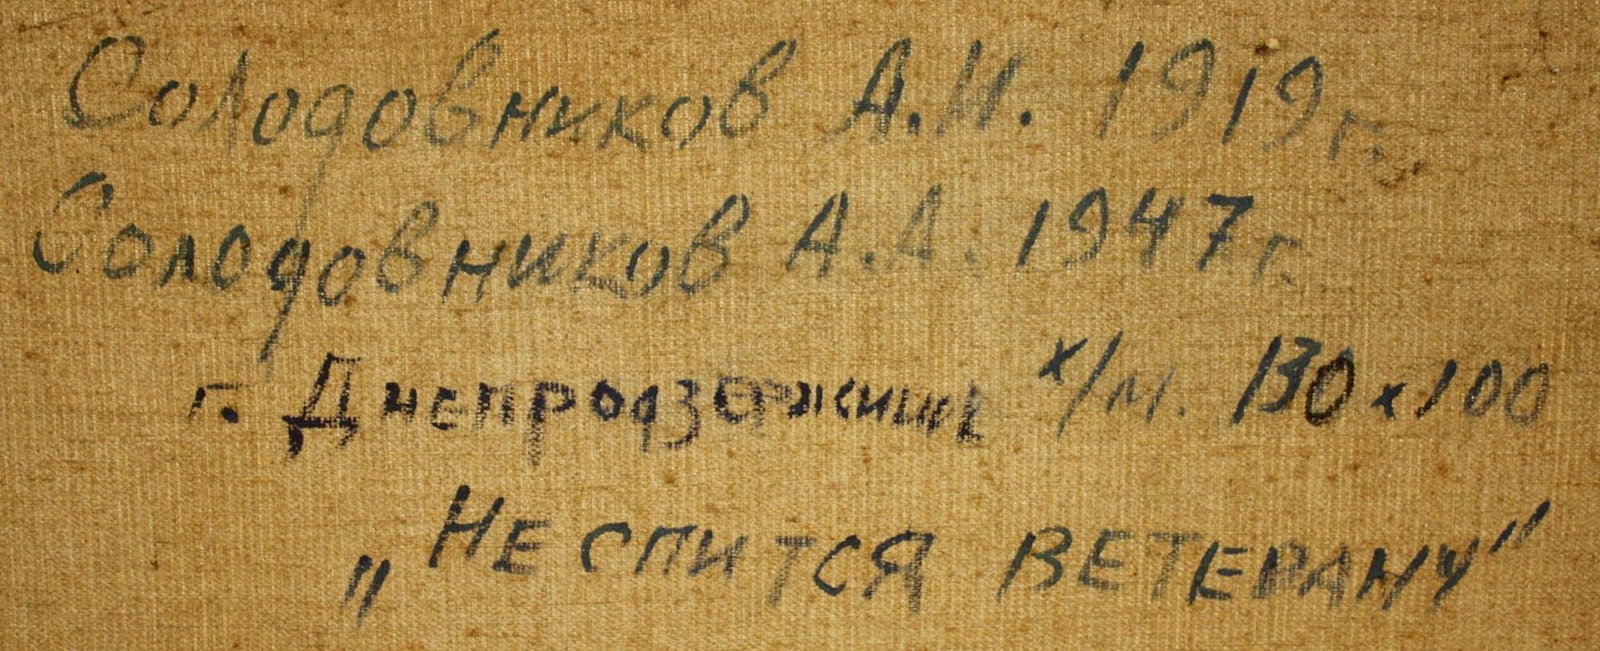 Солодовников А.И. 1919 г.
Солодовников А.А. 1947 г.
г. Днепродзержинск х/м. 130 х 100
„Не спится ветерану"